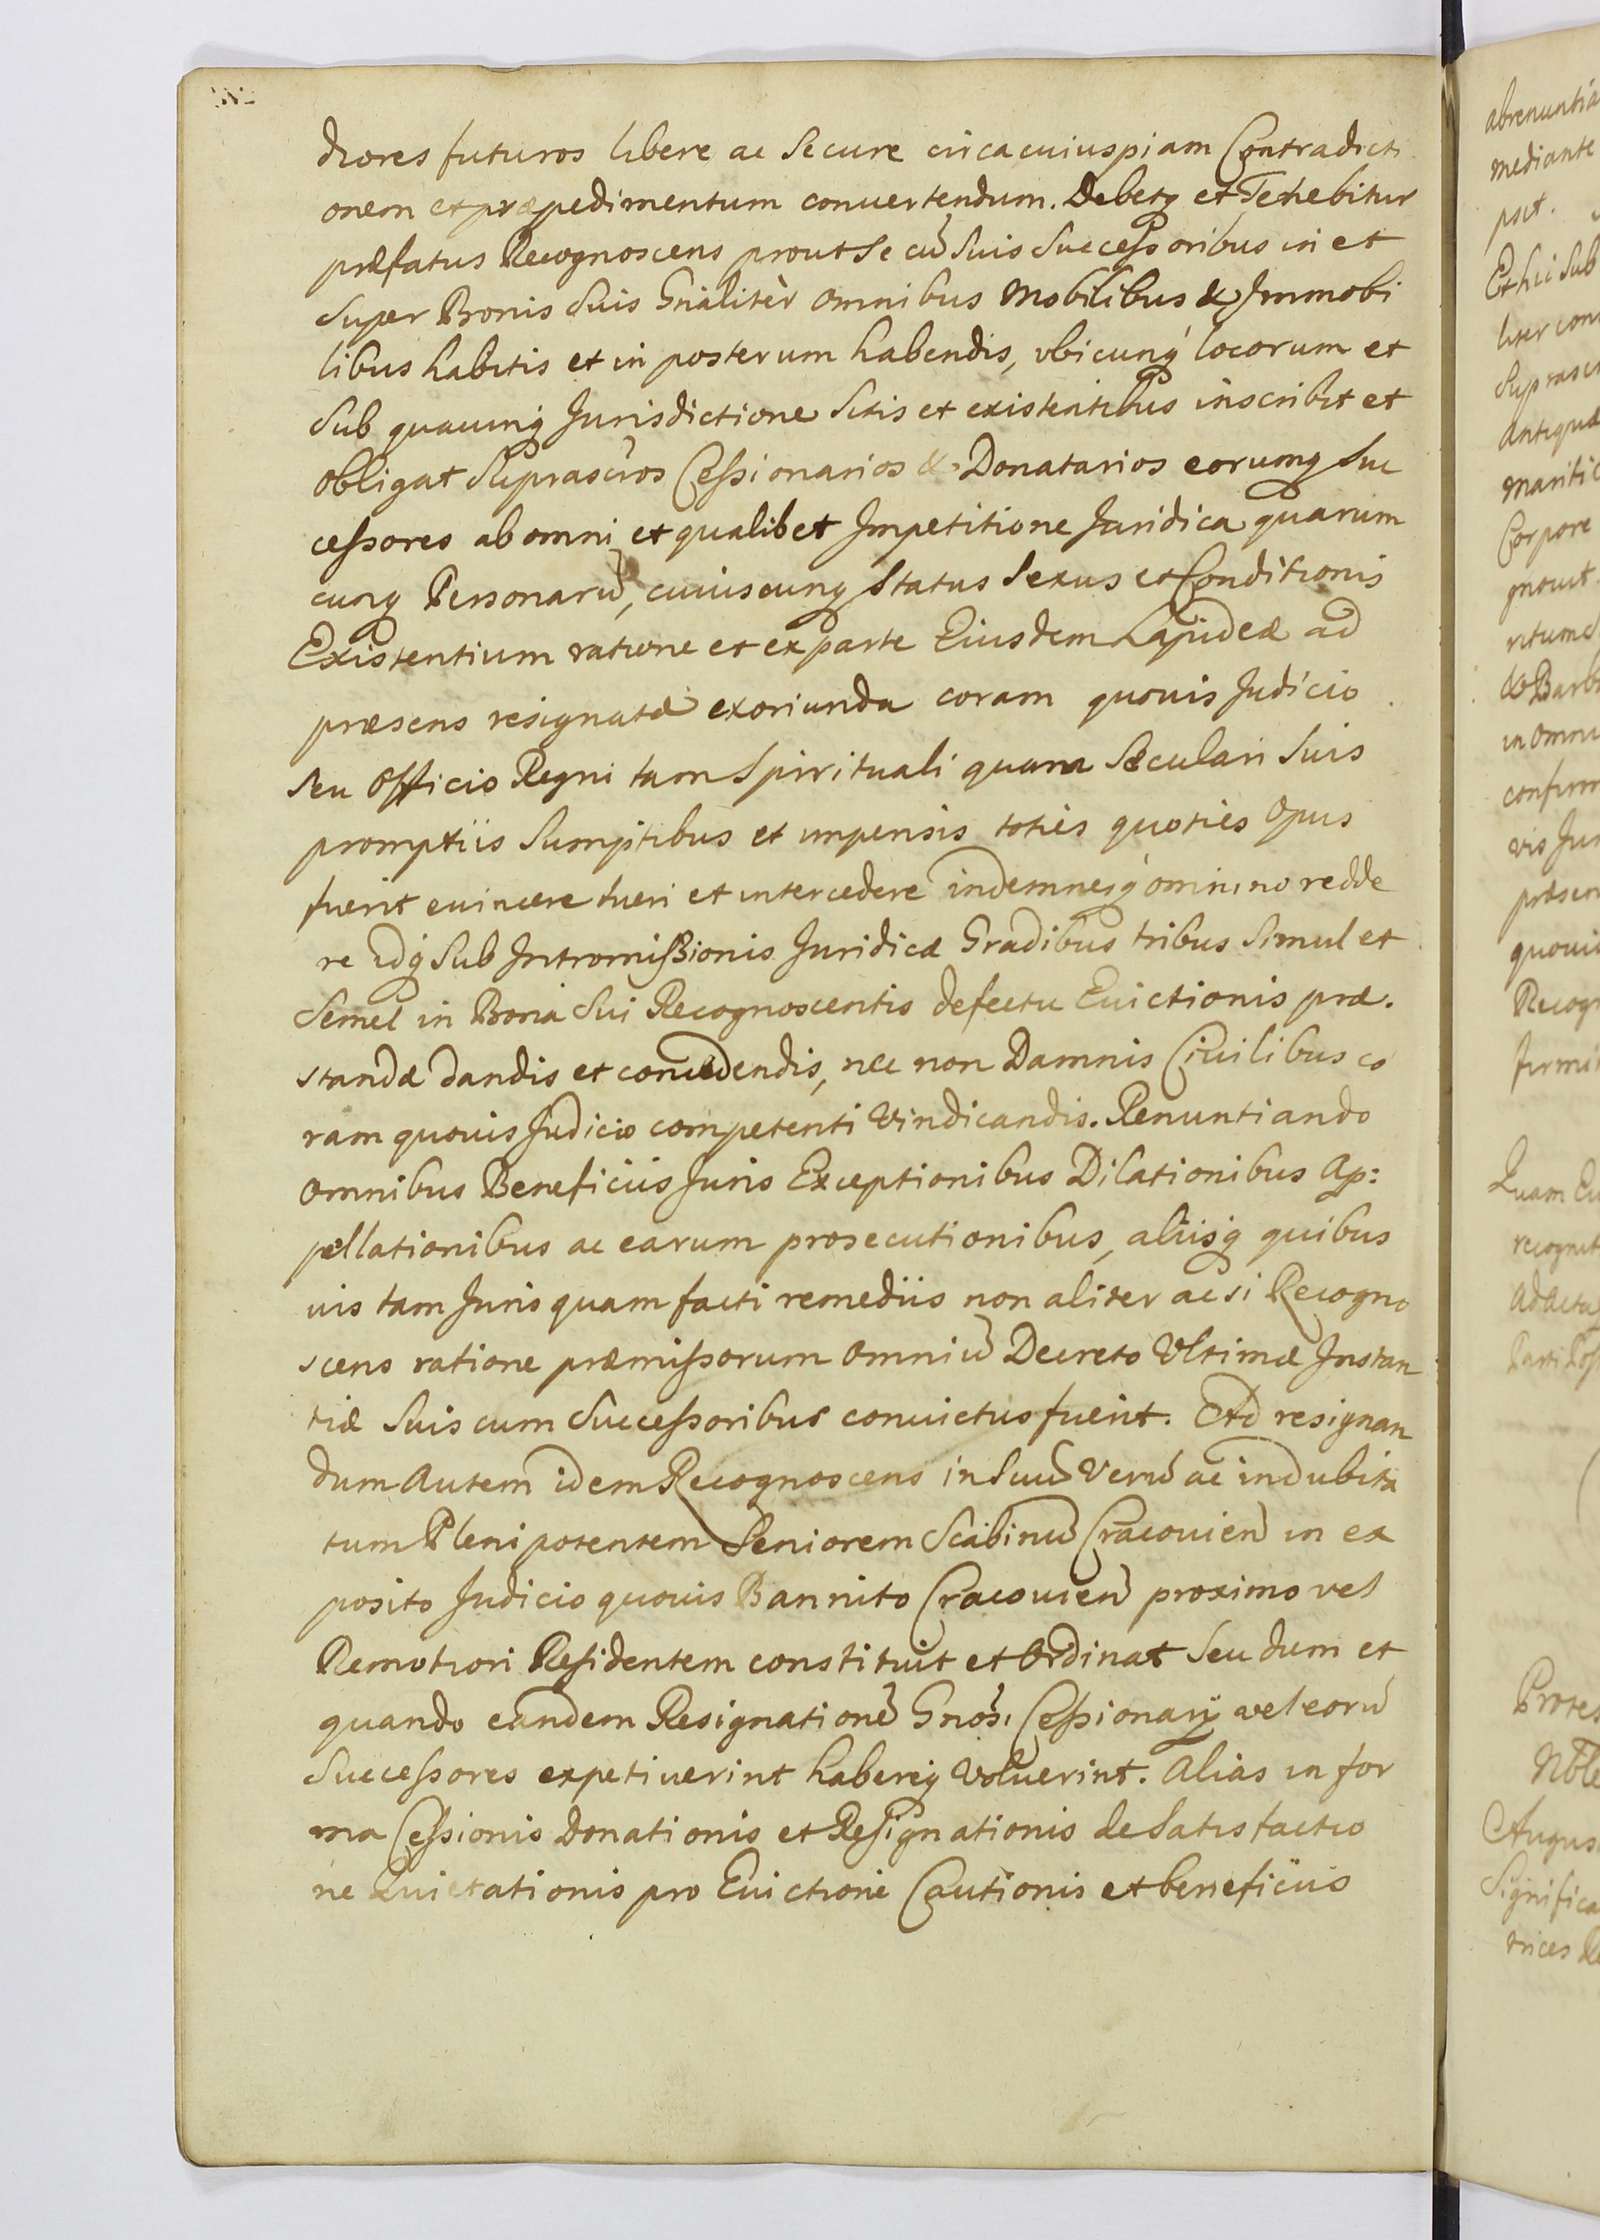 diores futuros libere ac Secure circa cuiuspiam Contradicti
onem et præpedimentum conuertendum. Debetq et Tenebitur
præfatus Recognoscens prout Se cū Suis Successoribus in et
Super Bonis Suis Gnaliter omnibus Mobilibus & Immobi
libus habitis et in posterum habendis, vbicunq locorum et
Sub quacunq Jurisdictione Sitis et existentibus inscribit et
Obligat Suprascros Cessionarios & Donatarios eorumq Suc
cessores ab omni et qualibet Impetitione Juridica quarum
cunq Personarū, cuiuscunq Status Sexus et Conditionis
Existentium ratione et ex parte Eiusdem Lapideæ ad
præsens resignatæ exoriunda coram quouis Judicio
Seu Officio Regni tam Spirituali quam Sæculari Suis
promptiis Sumptibus et impensis toties quoties Opus
fuerit euincere tueri et intercedere indemnesq omnino redde
re idq Sub Intromissionis Juridicæ Gradibus tribus Simul et
Semel in Bona Sui Recognoscentis defectu Euictionis præ.
standæ dandis et concedendis, nec non Damnis Ciuilibus co
ram quouis Judicio competenti Vindicandis. Renuntiando
Omnibus Beneficiis Juris Exceptionibus Dilationibus Ap:
pellationibus ac earum prosecutionibus, aliisq quibus
uis tam Juris quam facti remediis non aliter ac si Recogno
scens ratione præmissorum Omniū Decreto Vltimæ Instan
tiæ Suis cum Successoribus conuictus fuerit. Ad resignan
dum Autem idem Recognoscens in Suū Verū ac indubita
tum Plenipotentem Seniorem Scabinū Cracouien in ex
posito Judicio quouis Bannito Cracouien proximo vel
Remotiori Residentem constituit et Ordinat Seu dum et
quando eandem Resignationē Gnosi Cessionarij vel eorū
Successores expetiuerint habereq Voluerint. Alias in for
ma Cessionis Donationis et Resignationis de Satisfactio
ne Quietationis pro Euictione Cautionis et beneficiis
abrenuntia
mediante
Et hii Sub
liter con
Suprascr
Antiquæ
mariti
Corpore
gnouit
& Barb
in Omni
confirm
vis Jur
præsen
quouis
Recogn
firmi
Quam Eu
recognit
Ad Acta
Protes
Nble
August
Significa
trices Re